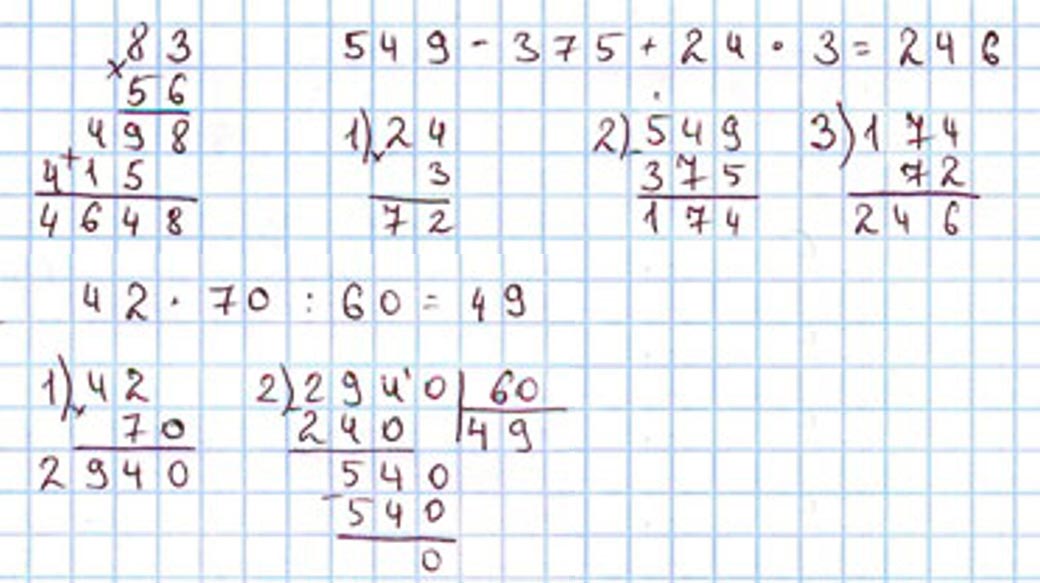 83
×
56
498
+
415
4648
549 - 375 + 24 · 3 = 246
1) 24
×
3
72
2) 549
-
375
174
3) 174
72
246
42 · 70 : 60 = 49
1) 42
×
70
2940
2) 2940 | 60
-
240 | 49
540
-
540
0